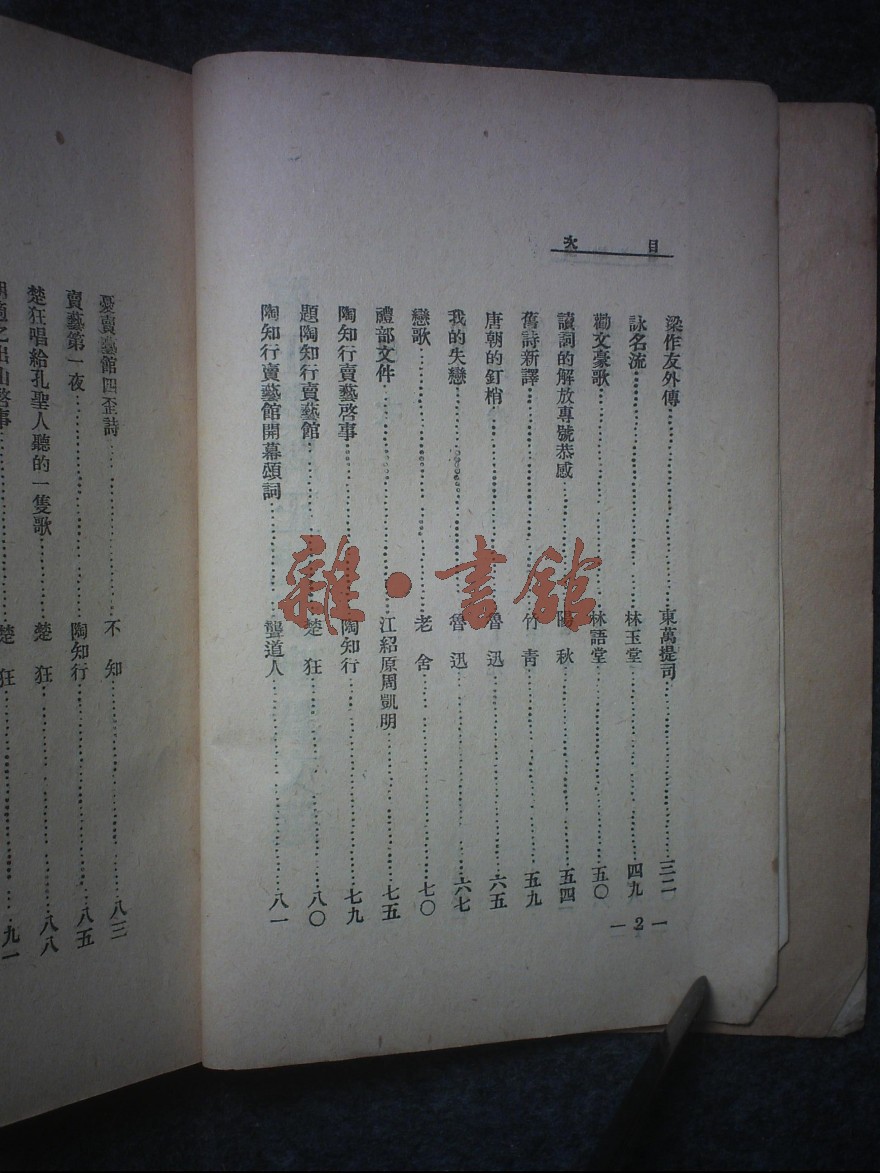 目次
梁作友外傳……東萬提司……三二
詠名流……林玉堂……四九
勸文豪歌……林語堂……五〇
讀詞的解放專號恭感……陽秋……五四
舊詩新譯……竹青……五九
唐朝的釘梢……魯迅……六五
我的失戀……魯迅……六七
戀歌……老舍……七〇
禮部文件……江紹原周凱明……七五
陶知行賣藝啓事……陶知行……七九
題陶知行賣藝館……楚狂……八〇
陶知行賣藝館開幕頌詞……龔道人……八一
— 2 —
憂賣藝館四歪詩……不知……八三
賣藝第一夜……陶知行……八五
楚狂唱給孔聖人聽的一隻歌……楚狂……八八
適之出山啓事……楚狂……九一
雜·書館